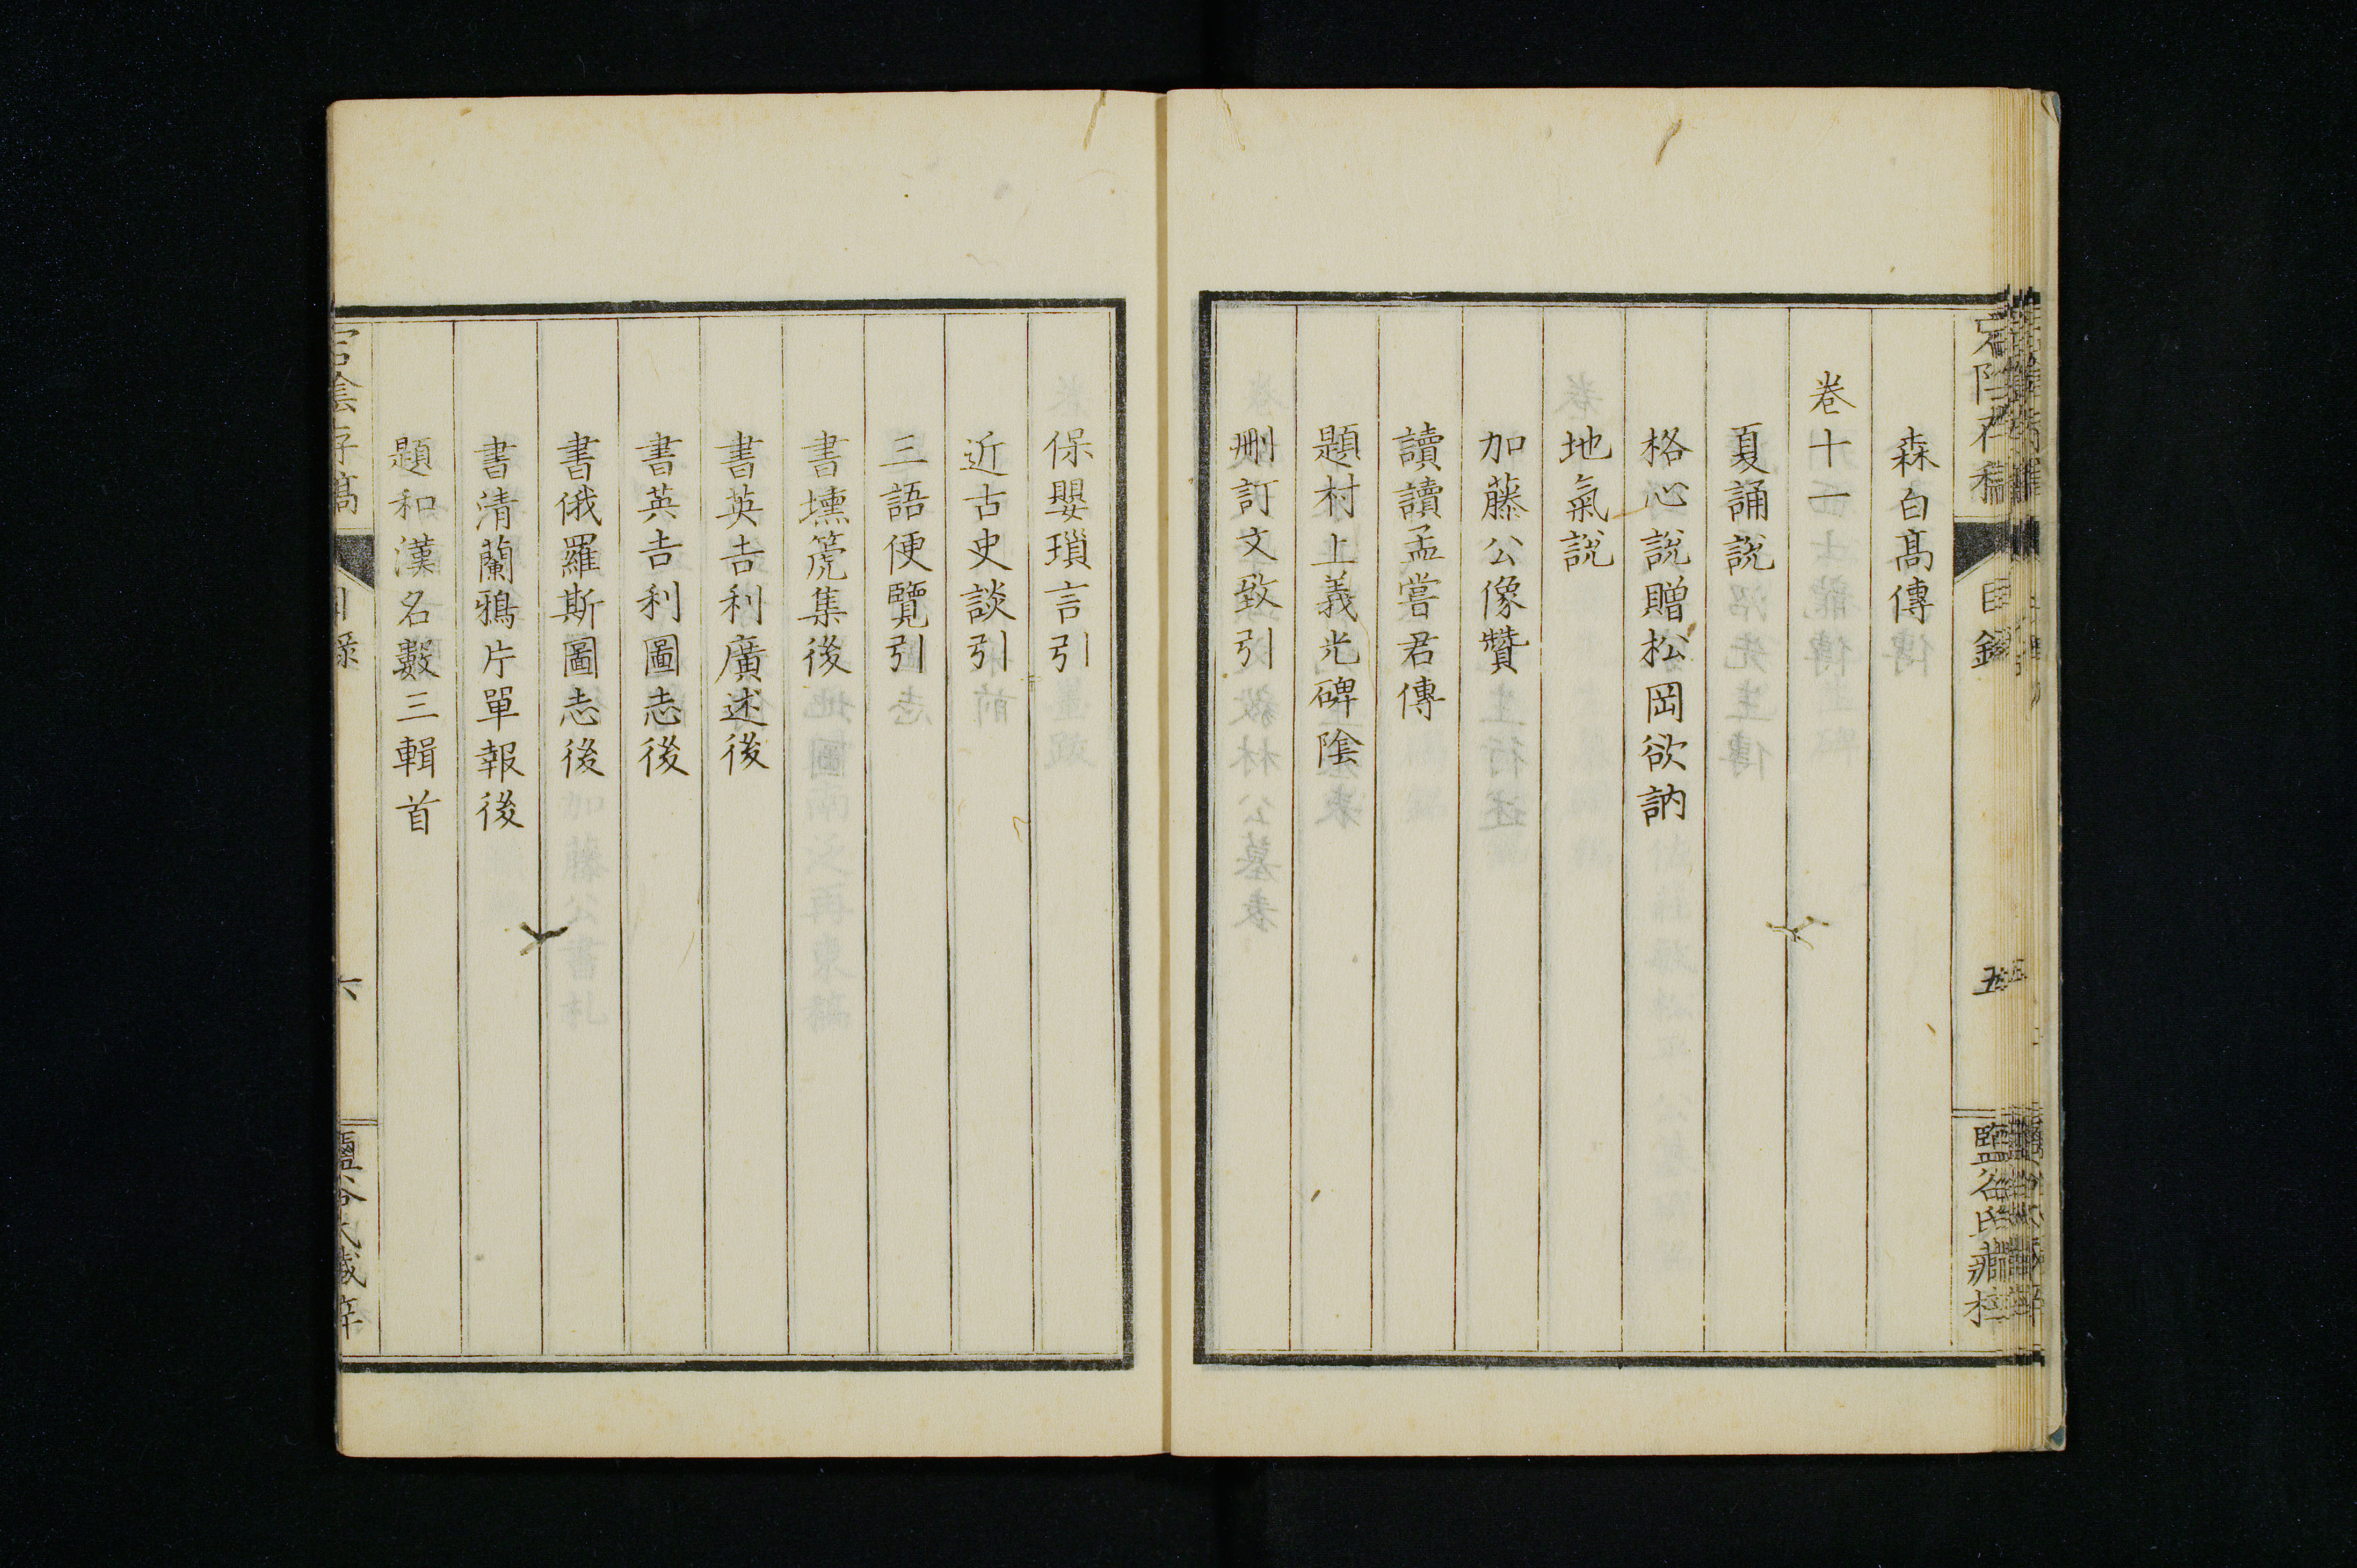 宕陰存稿
目錄
五
鹽谷氏藏梓
森白髙傳
卷十一
夏誦說
格心說贈松岡欲訥
地氣說
加藤公像贊
讀讀孟嘗君傳
題村上義光碑陰
刪訂文致引
保嬰瑣言引
近古史談引
三語便覽引
書壎篪集後
書英吉利廣述後
書英吉利圖志後
書俄羅斯圖志後
書清蘭鴉片單報後
題和漢名數三輯首
宕陰存稿
目錄
六
鹽谷氏藏梓